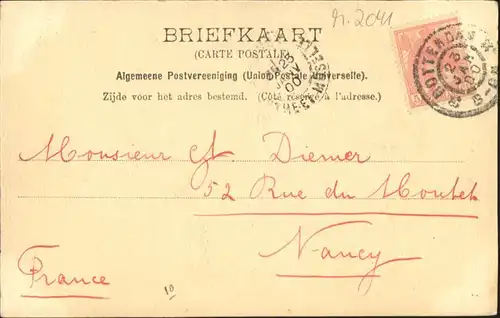 n. 2041
BRIEFKAART
(CARTE POSTALE)
Algemeene Postvereeniging (Union Postale Universelle).
Zijde voor het adres bestemd. (Côté réservé à l'adresse.)
ROTTERDAM
Monsieur Diemer
52 Rue du Montet
Nancy
France
10